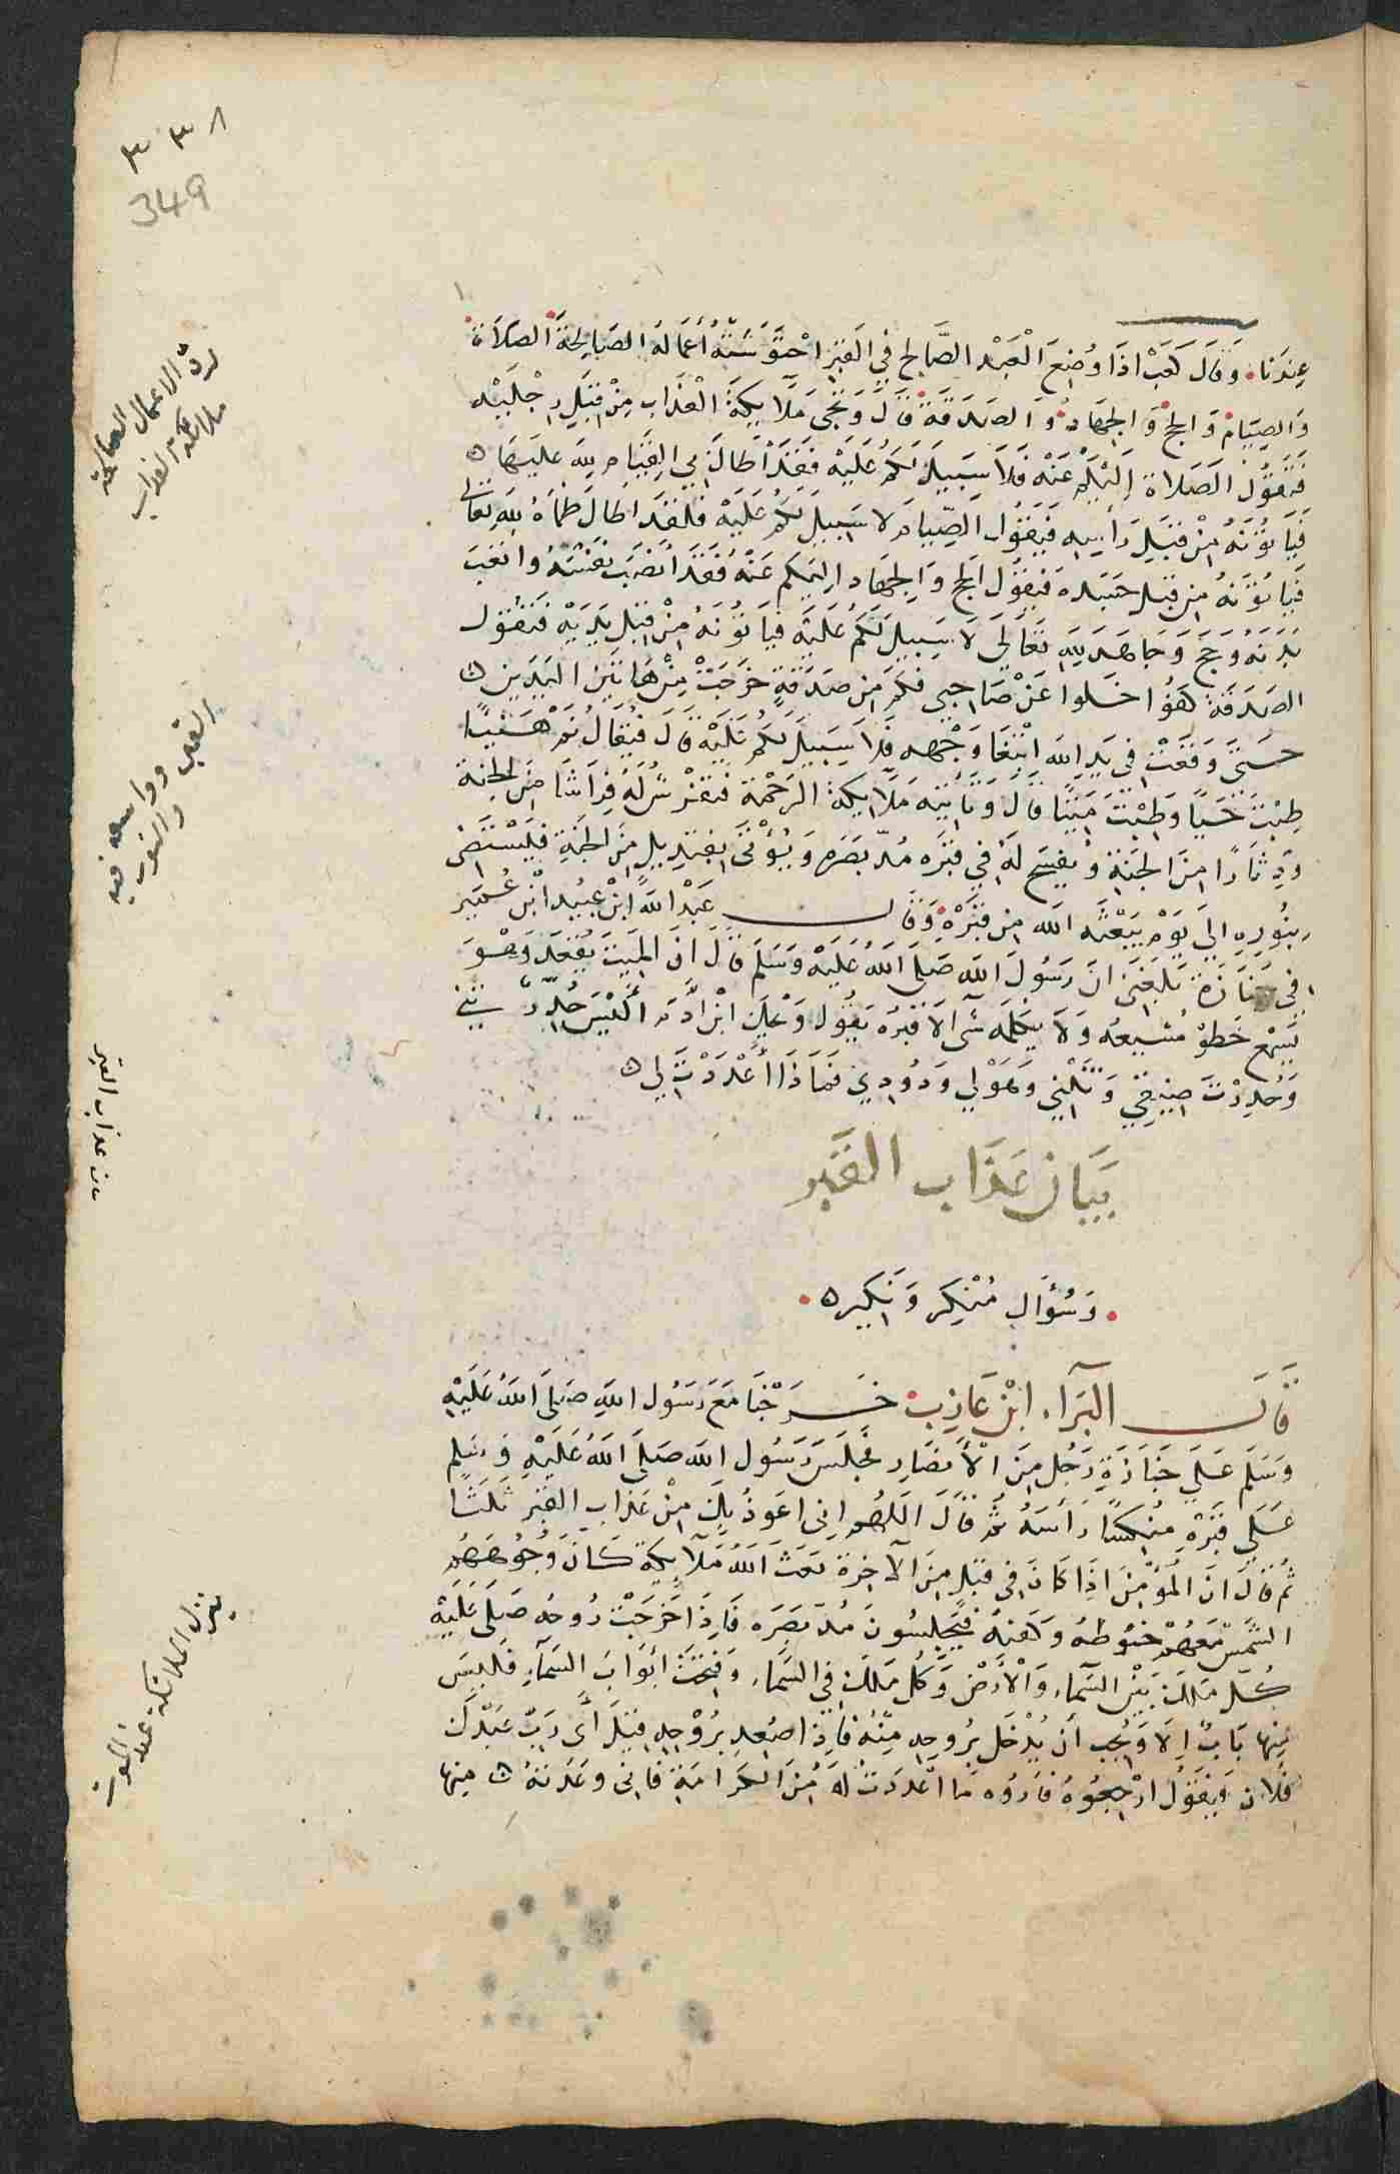 ٣٣٨
349
عِندَنَا. وَقَالَ كَعَبْ اذَا وُضِعَ الْعَبْد الصَّالح فِي القَبْر احْتَوَشَتْهُ أعمَاله الصَالِحَة الصَلاة
وَالصِيَام وَالحج وَالجهَاد وَالصَدقَة قَالَ وَتجىَ مَلَايكَة الْعَذَاب مِنْ قِبَل رِجْليْه
فَتَقولُ الصَلاة اِلَيْكم عَنْه فَلَا سَبيلَ لَكم عَلَيْه فَقَدْ أطَالَ بي القيَام لله عَليهَا ه
فَيَاتُونَهُ مِنْ قِبَلِ رَأسِه فَيَقُول الصّيَام لا سَبيل لكم عَلَيْه فلقَد اطالَ ظمَاهُ لله تعَالى
فَيَاتُونَهُ مِن قِبَل جَسَده فَيَقُول الحج وَالجهَاد اليَكم عَنْهُ فَقَد أنصَبَ نَفْسَهُ وَاتعَبَ
بَدَنَهُ وَحَج وَجَاهَدَ لِلّهِ تَعَالَى لَا سَبيلَ لَكم عَلَيْه فيَاتونَهُ مِنْ قِبَلِ يَدَيْه فَتَقُول
الصَدَقَة كفوُا خَلوا عَنْ صَاحِبي فَكَم مِن صَدَقَةٍ خَرَجَتْ مِنْ هَاتَيْن اليَدَين ه
حَتى وَقَعَتْ فِي يَدِ الله ابْتغَا وَجْهِه فَلَا سَبيلَ لَكُم عَلَيْه قَالَ فيُقَالُ لَهُ هَنيئًا
طِبْتَ حَيًا وَطِبْتَ مَيتًا قَالَ وَتَأتِيه مَلَايكَة الرَحْمَة فتَفْرشُ لَهُ فِرَاشًا مِن الجَنة
وَدِثَارًا مِنَ الجَنة وَيفسَح لَهُ فِي قَبْره مُدّ بَصَره وَيُؤتَى بقنديل مِن الجَنةِ فَيَسْتَضئ
بنُوره الىَ يَوْم يَبْعَثه الله مِن قَبْرهِ وَقَالَ عَبْد الله ابْن عُبيد ابْن عُمَيْر
فِي جنَازَة بَلَغنىَ انَ رَسُولَ الله صَلىَ اللهُ عَلَيْه وَسَلم قَالَ انَ المَيتَ يُقعَد وَهُوَ
يَسْمَع خَطوَ مُشَيعيه وَلَا يكَلمه شى الَا قَبْرُه يَقُول وَيْحَكَ ابْن اَدَم أَلَيْسَ حُذِّرْتَنِي
وَحُذرْتَ ضِيقي وَنَتنِي وَهَوْلي وَدُودِي فَمَاذَا أعْدَدْتَ لِي ه
بَيَان عَذَاب القَبْر
. وَسُؤَال مُنْكِر وَنَكِير ه .
قَالَ البَرَاء ابْن عَازِب خَرَجْنَا مَعَ رَسُول اللهِ صَلىَ اللهُ عَلَيْهِ
وَسَلم عَلى جَنَازَةِ رَجُل مِنَ الأنصَار فجَلسَ رَسُول الله صَلىَ اللهُ عَلَيْهِ وَسَلم
عَلىَ قَبْرهِ مُنكسًا رَاسَهُ ثُم قَالَ اللهُم اني اعوذُ بكَ مِنْ عَذابِ القَبْر ثَلثًا
ثُم قالَ انَ المُؤمنَ اذَا كَانَ فِي قبَلٍ مِنَ الآخِرة بَعَثَ اللهُ مَلَايكَة كَانَ وُجُوههُم
الشَمسْ مَعَهُمْ حَنُوطهُ وَكَفنهُ فَيَجلِسُونَ مُدّ بَصَره فَاذَا خَرَجَتْ رُوحُه صَلىَ عَلَيْه
كُلّ مَلَك بَيْن السَمَاء وَالْأَرْض وَكُل مَلَكٍ فِي السَمَاء وَفُتحَتْ أبْوَابَ السَمَاءِ فَلَيسَ
مِنها بَابٌ اِلَا وَيُحِب ان يُدْخَلَ برُوحِه مِنْهُ فَاِذا صُعِدَ برُوْحِه قِيلَ أى رَبّ عَبْدكَ
فُلان فَيَقُولُ ارْجِعُوهُ فَارُوه مَا اعْدَدْتُ لَهُ مِنَ الكَرَامَة فاني وَعَدتهُ ه منها
ملائكة العذاب
القبر وواسعه فيه
بيان عذاب القبر
ينزل الملائكة عند الموت